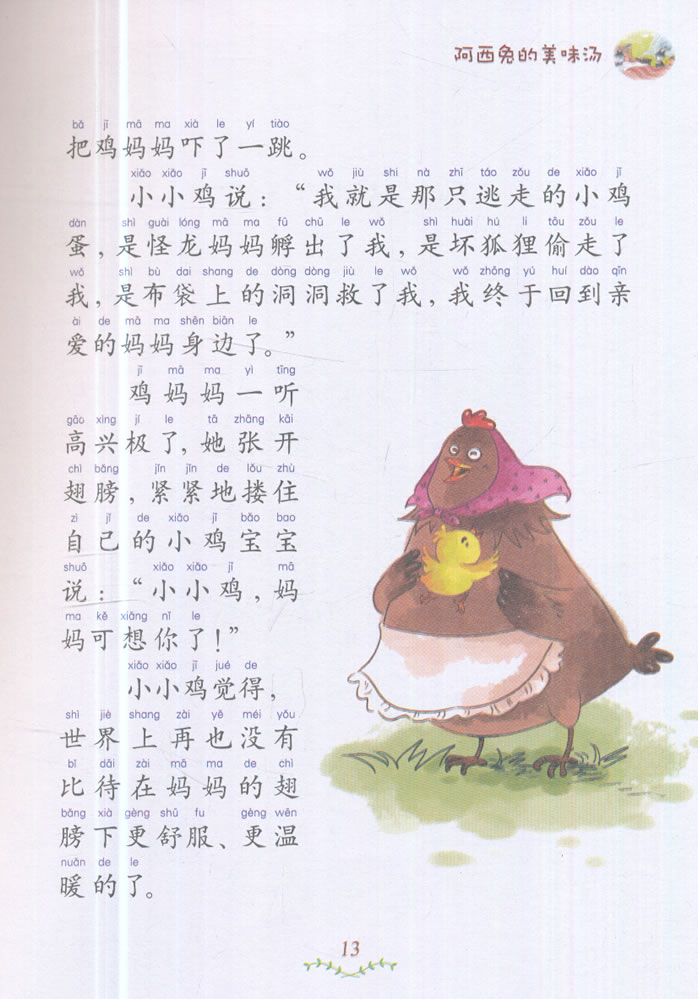 阿西兔的美味汤
bǎ jī mā ma xià le yí tiào
把鸡妈妈吓了一跳。
xiǎo xiǎo jī shuō wǒ jiù shì nà zhī táo zǒu de xiǎo jī
小小鸡说：“我就是那只逃走的小鸡
dàn shì guài lóng mā ma fū chū le wǒ shì huài hú li tōu zǒu le
蛋，是怪龙妈妈孵出了我，是坏狐狸偷走了
wǒ shì bù dai shang de dòng dòng jiù le wǒ wǒ zhōng yú huí dào qīn
我，是布袋上的洞洞救了我，我终于回到亲
ài de mā ma shēn biān le
爱的妈妈身边了。”
jī mā ma yì tīng
鸡妈妈一听
gāo xìng jí le tā zhāng kāi
高兴极了，她张开
chì bǎng jǐn jǐn de lǒu zhù
翅膀，紧紧地搂住
zì jǐ de xiǎo jī bǎo bao
自己的小鸡宝宝
shuō xiǎo xiǎo jī mā
说：“小小鸡，妈
ma kě xiǎng nǐ le
妈可想你了！”
xiǎo xiǎo jī jué de
小小鸡觉得，
shì jiè shang zài yě méi yǒu
世界上再也没有
bǐ dāi zài mā ma de chì
比待在妈妈的翅
bǎng xià gèng shū fu gèng wēn
膀下更舒服、更温
nuǎn de le
暖的了。
13